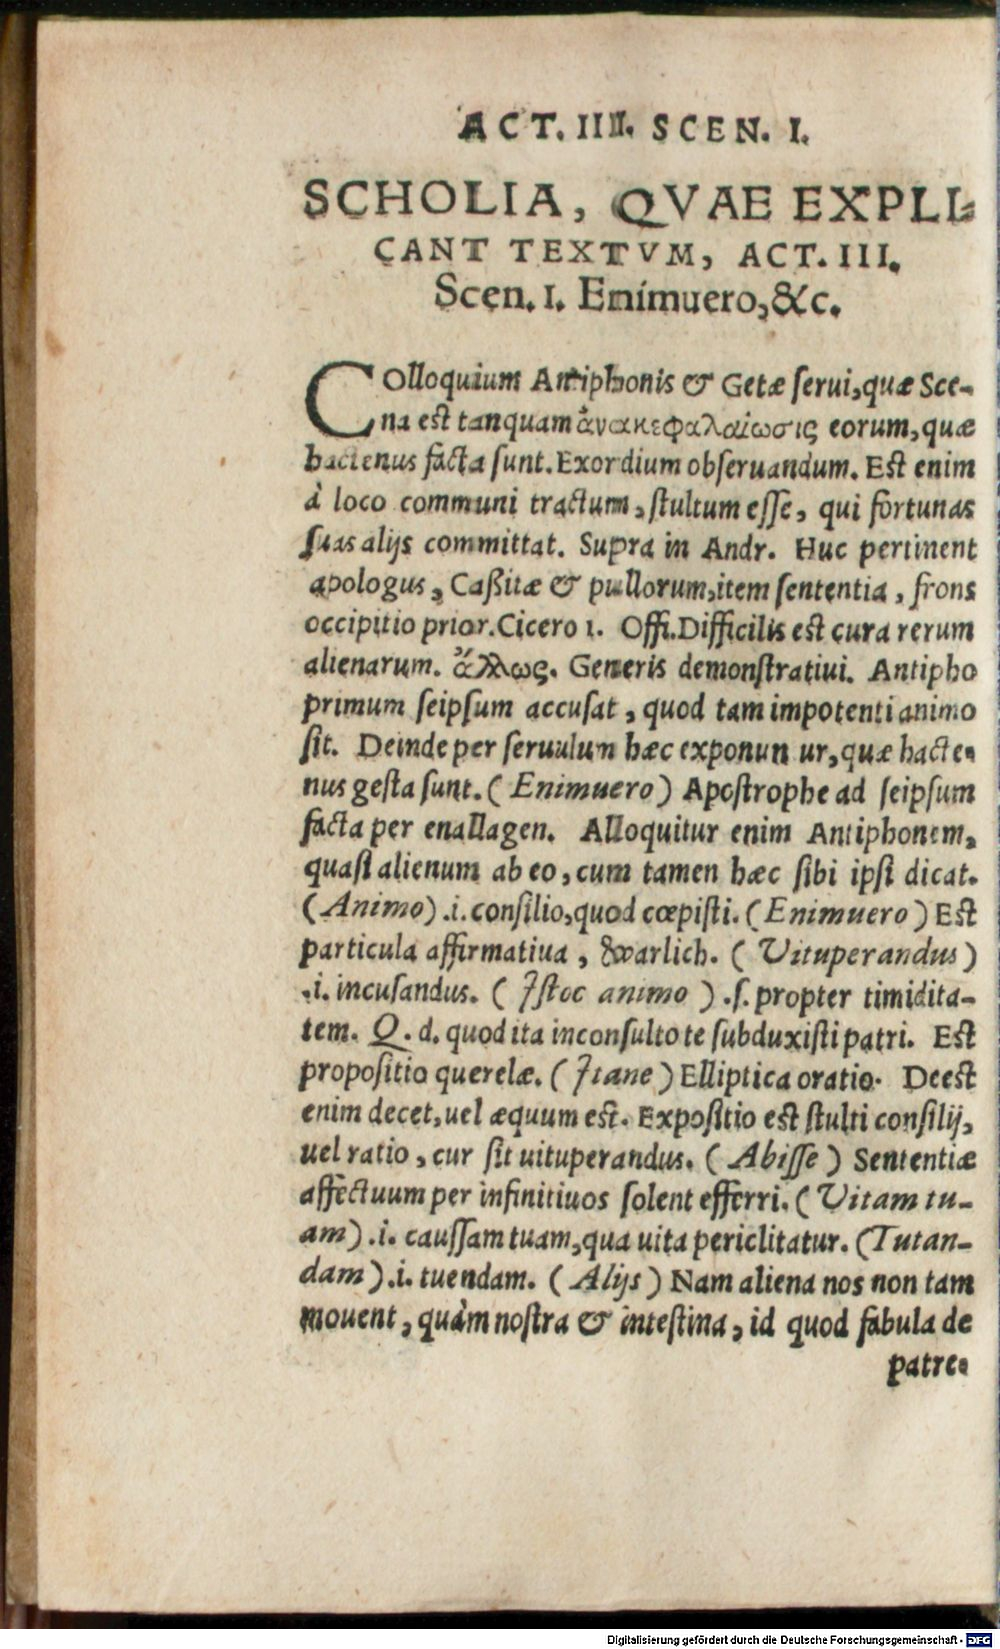 ACT. III. SCEN. I.
SCHOLIA, QVAE EXPLI-
CANT TEXTVM, ACT. III.
Scen. I. Enimuero, &c.
COlloquium Antiphonis & Getæ serui, quæ Sce-
na est tanquam ἀνακεφαλαίωσις eorum, quæ
hactenus facta sunt. Exordium obseruandum. Est enim
à loco communi tractum, stultum esse, qui fortunas
suas alijs committat. Supra in Andr. Huc pertinent
apologus, Caßitæ & pullorum, item sententia, frons
occipitio prior. Cicero 1. Offi. Difficilis est cura rerum
alienarum. ἄλλως. Generis demonstratiui. Antipho
primum seipsum accusat, quod tam impotenti animo
sit. Deinde per seruulum hæc exponun ur, quæ hacte-
nus gesta sunt. (Enimuero) Apostrophe ad seipsum
facta per enallagen. Alloquitur enim Antiphonem,
quasi alienum ab eo, cum tamen hæc sibi ipsi dicat.
(Animo) .i. consilio, quod cœpisti. (Enimuero) Est
particula affirmatiua, warlich. (Vituperandus)
.i. incusandus. (Istoc animo) .s. propter timidita-
tem. Q. d. quod ita inconsulto te subduxisti patri. Est
propositio querelæ. (Itane) Elliptica oratio. Deest
enim decet, uel æquum est. Expositio est stulti consilij,
uel ratio, cur sit uituperandus. (Abisse) Sententiæ
affectuum per infinitiuos solent efferri. (Vitam tu-
am) .i. caussam tuam, qua uita periclitatur. (Tutan-
dam) .i. tuendam. (Alijs) Nam aliena nos non tam
mouent, quàm nostra & intestina, id quod fabula de
patre-
Digitalisierung gefördert durch die Deutsche Forschungsgemeinschaft - DFG